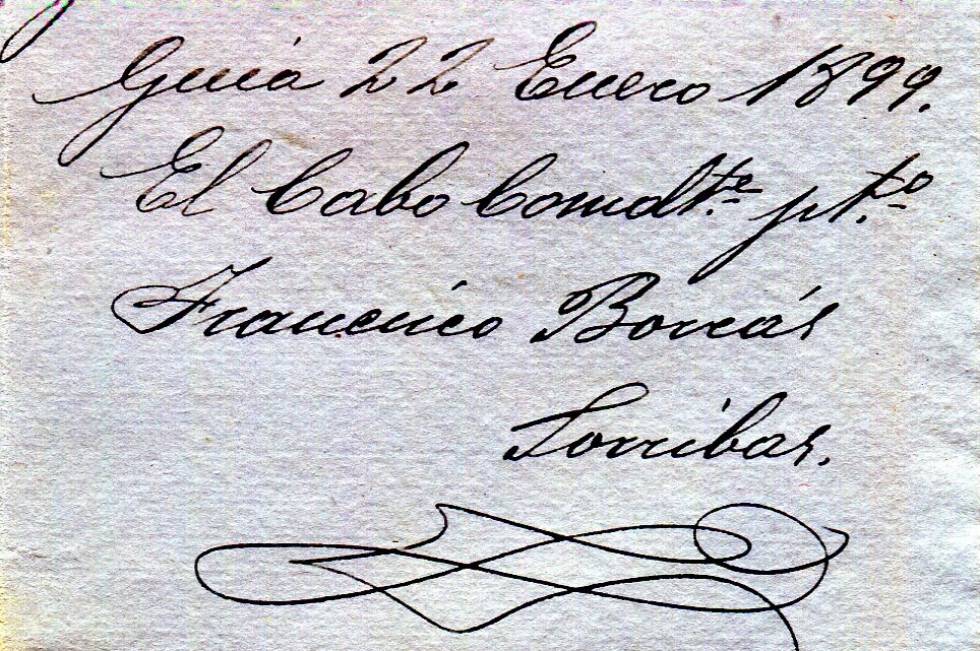 Guía 22 Enero 1899.
El Cabo Comdt.e pt.o
Francisco Borrás
Sorribas.